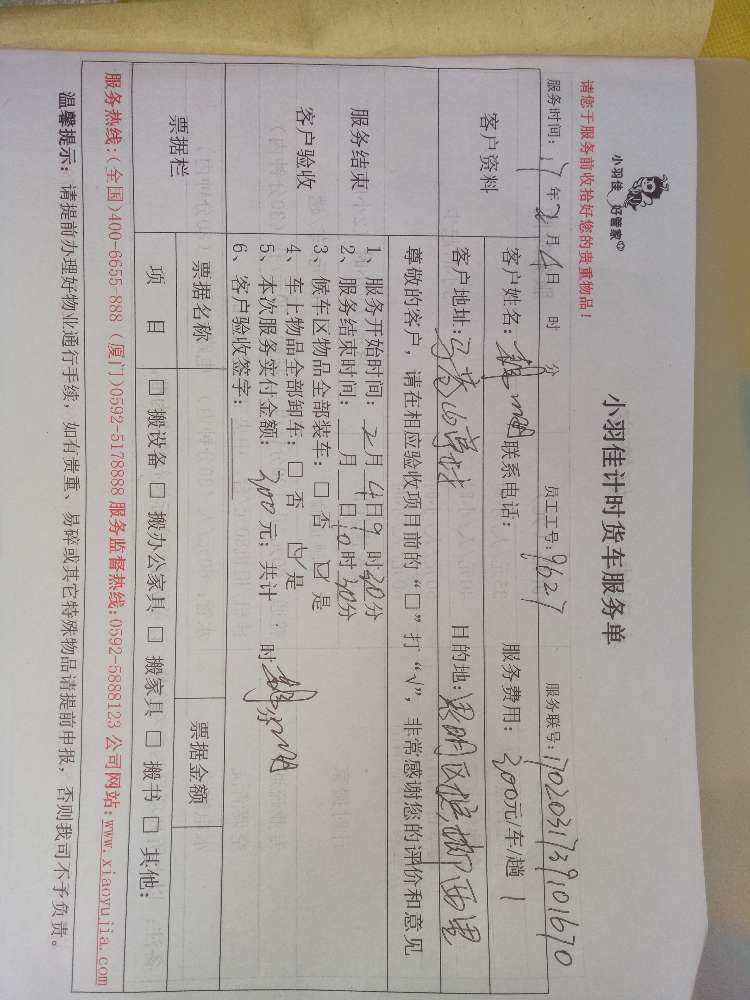 小羽佳 好管家
小羽佳计时货车服务单
请您于服务前收拾好您的贵重物品！
服务时间: 17年2月4日 时 分 员工工号: 9627 服务联号: 1702031739101670
客户资料
客户姓名: 联系电话: 服务费用: 200元/车/趟 1
客户地址: 目的地:
尊敬的客户，请在相应验收项目前的“□”打“√”，非常感谢您的评价和意见
服务结束
客户验收
1、服务开始时间: 2月4日9时30分
2、服务结束时间: 月 日10时30分
3、候车区物品全部装车: □ 否 ☑ 是
4、车上物品全部卸车: □ 否 ☑ 是
5、本次服务实付金额: 200元; 共计 时
6、客户验收签字:
票据栏
票据名称 票据金额
项 目 □ 搬设备 □ 搬办公家具 □ 搬家具 □ 搬书 □ 其他:
服务热线:(全国)400-6655-888 (厦门)0592-5178888 服务监督热线:0592-5888123 公司网站:www.xiaoyujia.com
温馨提示: 请提前办理好物业通行手续, 如有贵重、易碎或其它特殊物品请提前申报, 否则我司不予负责。